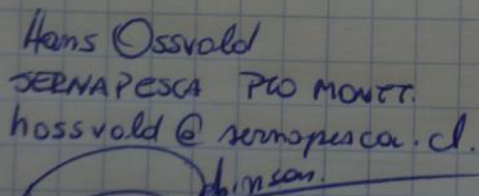 Hans Ossvald
SERNAPESCA PTO MONTT.
hossvald@sernapesca.cl.